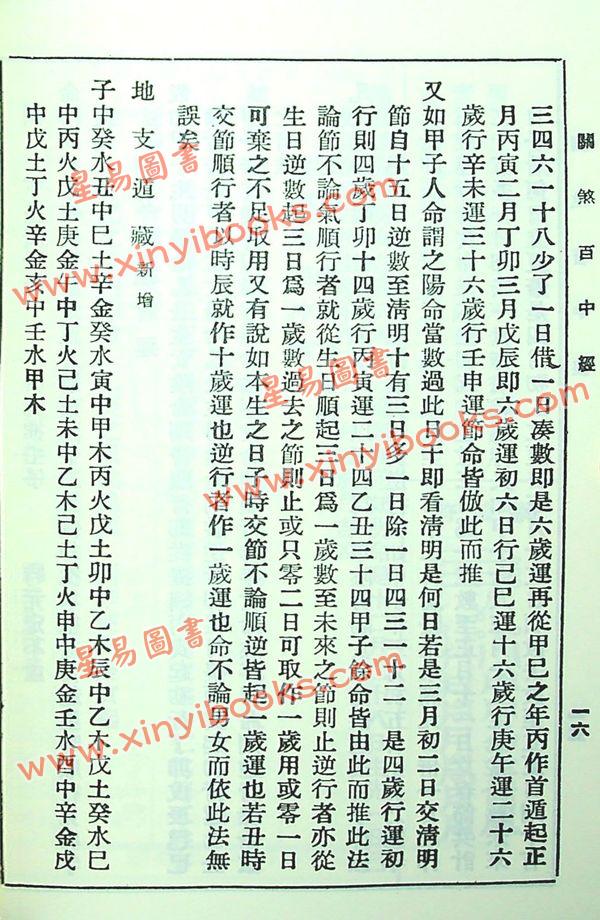 關煞百中經
一六
三四六一十八少了一日借一日湊數即是六歲運再從甲巳之年丙作首遁起正
月丙寅二月丁卯三月戊辰即六歲運初六日行己巳運十六歲行庚午運二十六
歲行辛未運三十六歲行壬申運節命皆倣此而推
又如甲子人命謂之陽命當數過此日干即看清明是何日若是三月初二日交清明
節自十五日逆數至清明十有三日多一日除一日四三一十二 是四歲行運初
行則四歲丁卯十四歲行丙寅運二十四乙丑三十四甲子餘命皆由此而推此法
論節不論氣順行者就從生日順起三日爲一歲數至未來之節則止逆行者亦從
生日逆數起三日爲一歲數過去之節則止或只零二日可取作一歲用或零一日
可棄之不足取用又有說如本生之日子時交節不論順逆皆起一歲運也若丑時
交節順行者以時辰就作十歲運也逆行者作一歲運也命不論男女而依此法無
誤矣
地支遁藏新增
子中癸水丑中巳土辛金癸水寅中甲木丙火戊土卯中乙木辰中乙木戊土癸水巳
中丙火戊土庚金午中丁火己土未中乙木己土丁火申中庚金壬水酉中辛金戌
中戊土丁火辛金亥中壬水甲木
星易圖書
www.xinyibooks.com
星易圖書
www.xinyibooks.com
星易圖書
www.xinyibooks.com